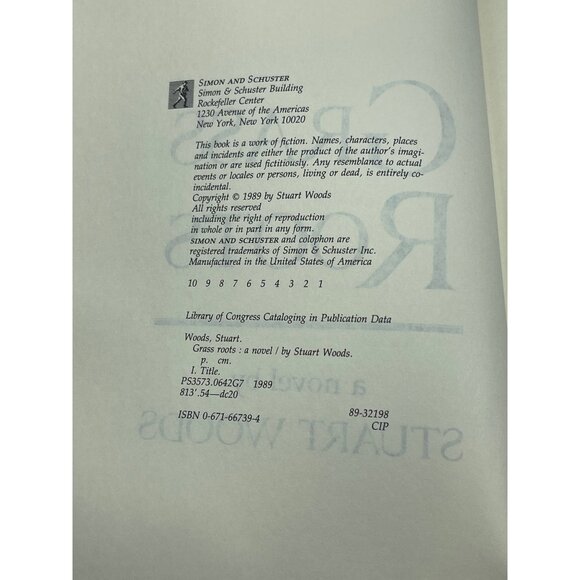 SIMON AND SCHUSTER
Simon & Schuster Building
Rockefeller Center
1230 Avenue of the Americas
New York, New York 10020
This book is a work of fiction. Names, characters, places
and incidents are either the product of the author's imagi-
nation or are used fictitiously. Any resemblance to actual
events or locales or persons, living or dead, is entirely co-
incidental.
Copyright © 1989 by Stuart Woods
All rights reserved
including the right of reproduction
in whole or in part in any form.
SIMON AND SCHUSTER and colophon are
registered trademarks of Simon & Schuster Inc.
Manufactured in the United States of America
10 9 8 7 6 5 4 3 2 1
Library of Congress Cataloging in Publication Data
Woods, Stuart.
Grass roots : a novel / by Stuart Woods.
p. cm.
I. Title.
PS3573.0642G7 1989
813'.54—dc20 89-32198
ISBN 0-671-66739-4 CIP
GRASS
ROOTS
a novel by
STUART WOODS